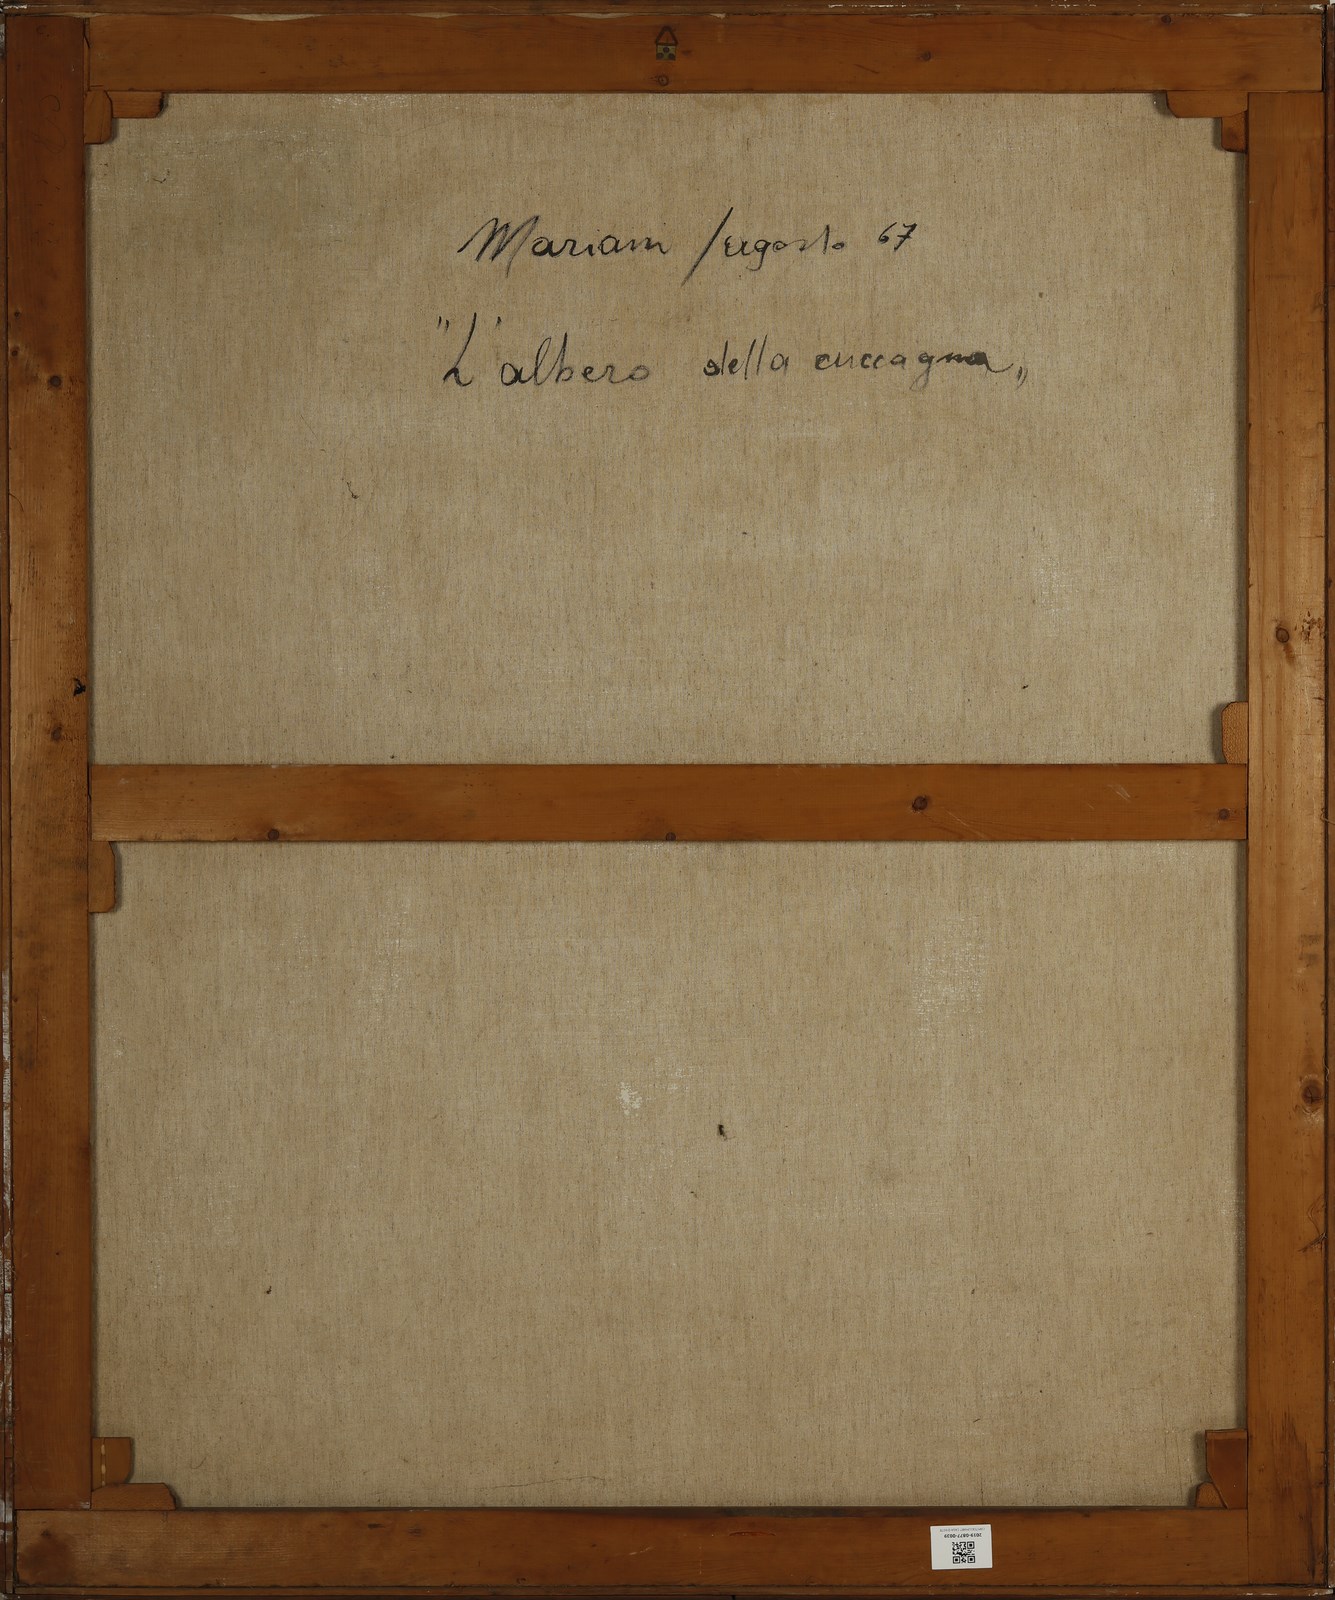 Mariani / agosto 67
"L'albero della cuccagna"
2019-0877-0029